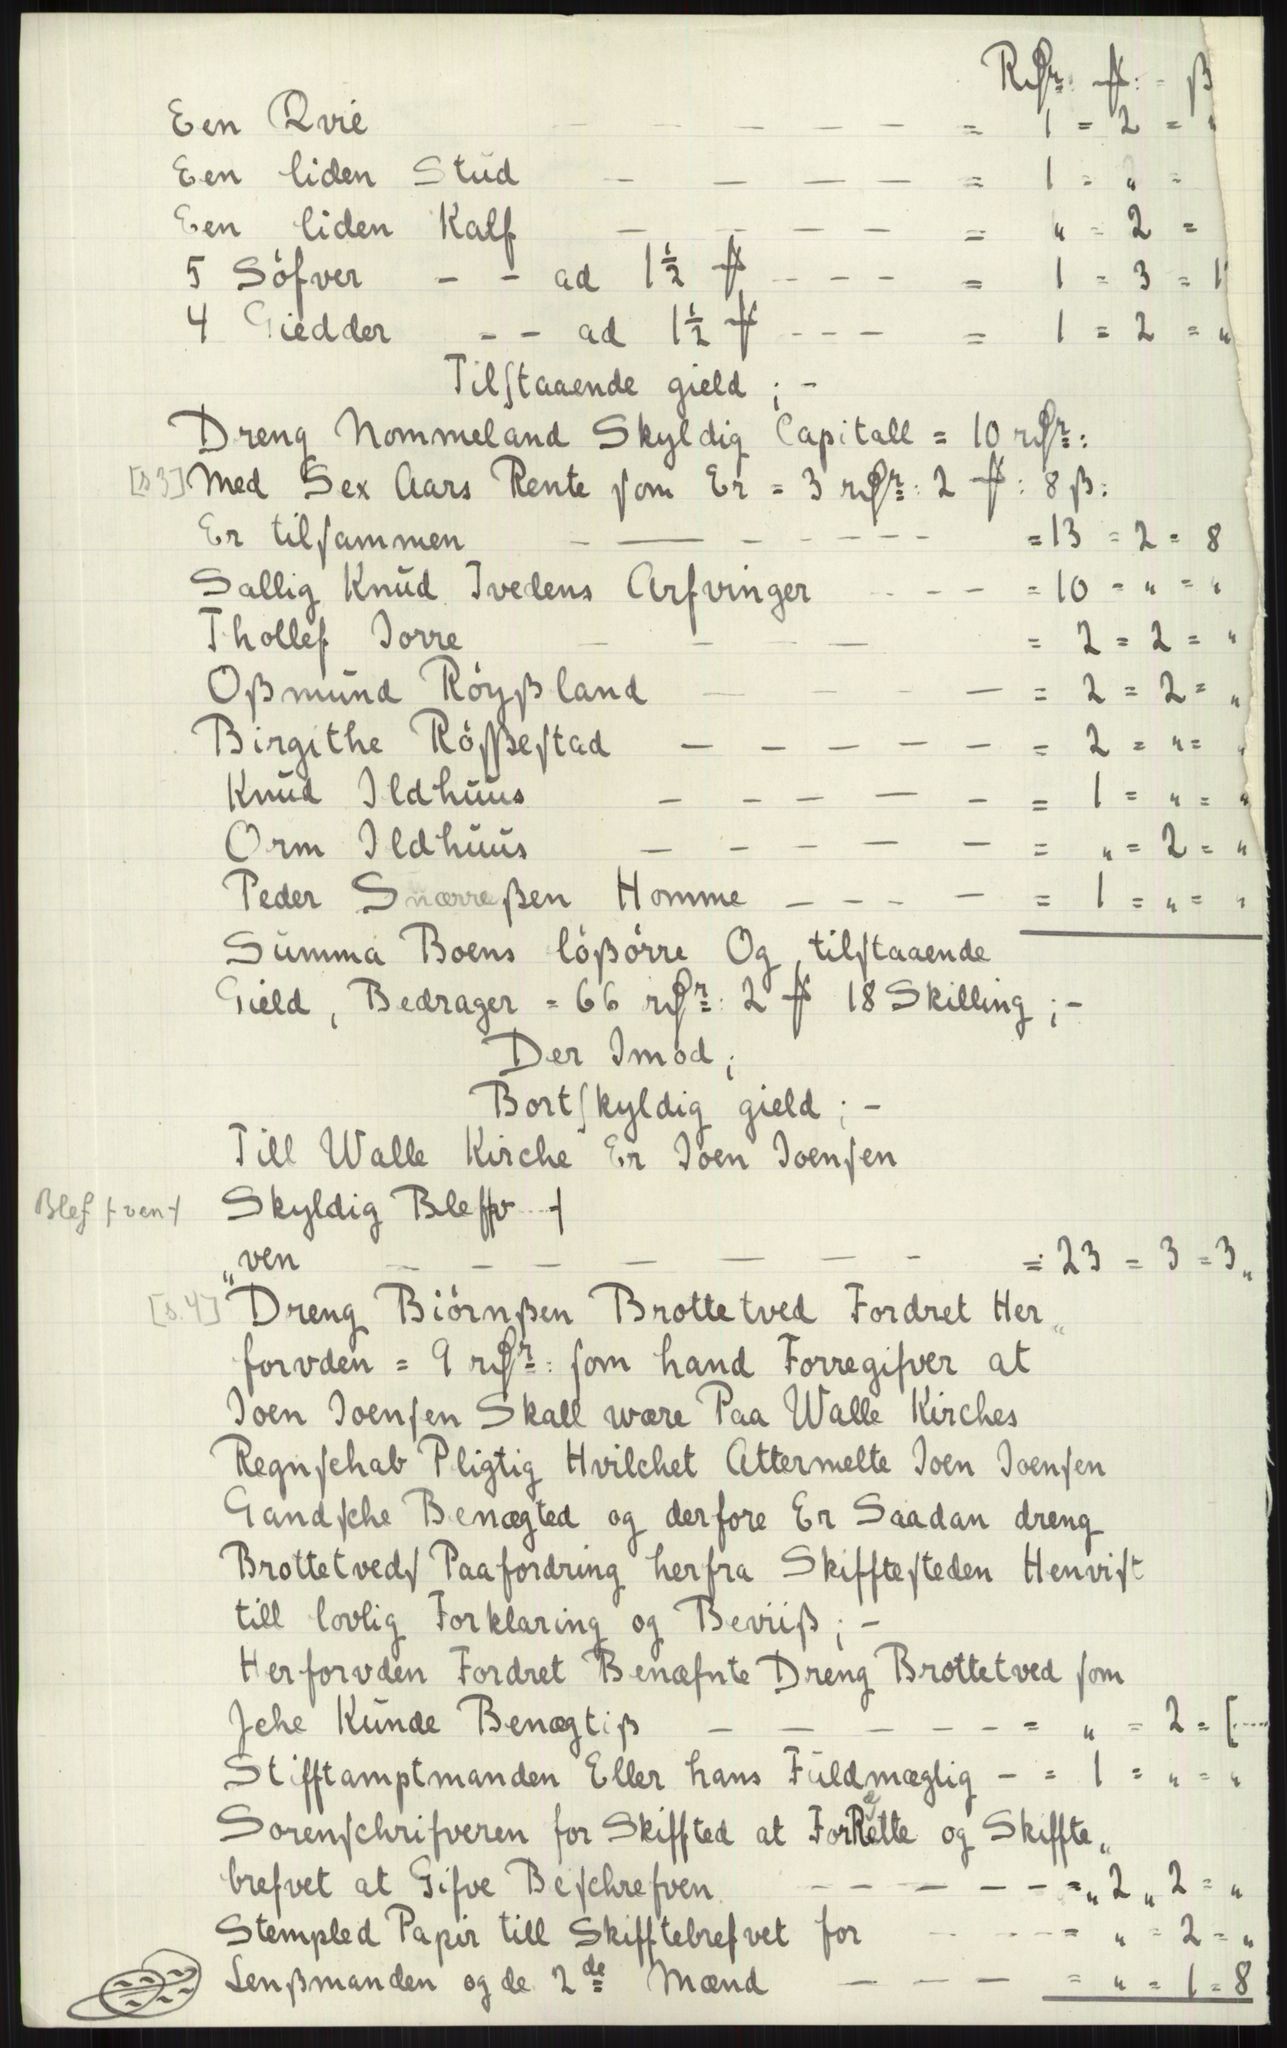 Rdr: ƒ: = ß
Een Qvie - - - - - = 1 = 2 = "
Een liden Stud - - - - = 1 = " =
Een liden Kalf - - - - - = " = 2 =
5 Söfver - - ad 1½ ƒ - - - - = 1 = 3 = 1
4 Giedder - - ad 1½ ƒ - - - = 1 = 2 = "
Tilſtaaende gield ; -
Dreng Nommeland Skyldig Capitall = 10 rdr:
[s 3] Med Sex Aars Rente ſom Er = 3 rdr: 2 ƒ: 8 ß:
Er tilſammen - - - - - - - = 13 = 2 = 8
Sallig Knud Ivedens Arfvinger - - - = 10 = " = "
Thollef Jorre - - - - = 2 = 2 = "
Oßmund Röyßland - - - - - = 2 = 2 = "
Birgithe Rößeſtad - - - - - - = 2 = " = "
Knud Ildhuus - - - - - = 1 = " = "
Orm Ildhuus - - - - - = " = 2 = "
Peder Snærreßen Homme - - - - = 1 = " = "
Summa Boens lößörre Og tilſtaaende
Gield, Bedrager = 66 rdr: 2 ƒ 18 Skilling ; -
Der Imod ;
Bortſkyldig gield ; -
Till Walle Kirche Er Joen Joenſen
Blef
Skyldig Bleffv
"ven - - - - - - - = 23 = 3 = 3"
[s. 4] Dreng Biörnßen Brottetved Fordret Her"
forvden = 9 rdr: ſom hand Forregifver at
Joen Joenſen Skall være Paa Walle Kirches
Regnſchab Pligtig Hvilchet Attermelte Joen Joenſen
Gandſche Benægted og derfore Er Saadan dreng
Brottetvedſ Paafordring herfra Skiffteſteden Henviſt
till lovlig Forklaring og Beviiß ; -
Herforvden Fordret Benæfnte Dreng Brottetved ſom
Jche Kunde Benægtiß - - - - - - = " = 2 = [....
Stifftamptmanden Eller hans Fuldmægtig - = 1 = " = "
Sorenſchrifveren for Skiffted at ForRette og Skiffte"
brefvet at Gifve Beſchrefven - - - - - - = " 2 " 2 = "
Stempled Papir till Skifftebrefvet for - - - = " = 2 = "
Lenßmanden og de 2de Mænd - - - = " = 1 = 8